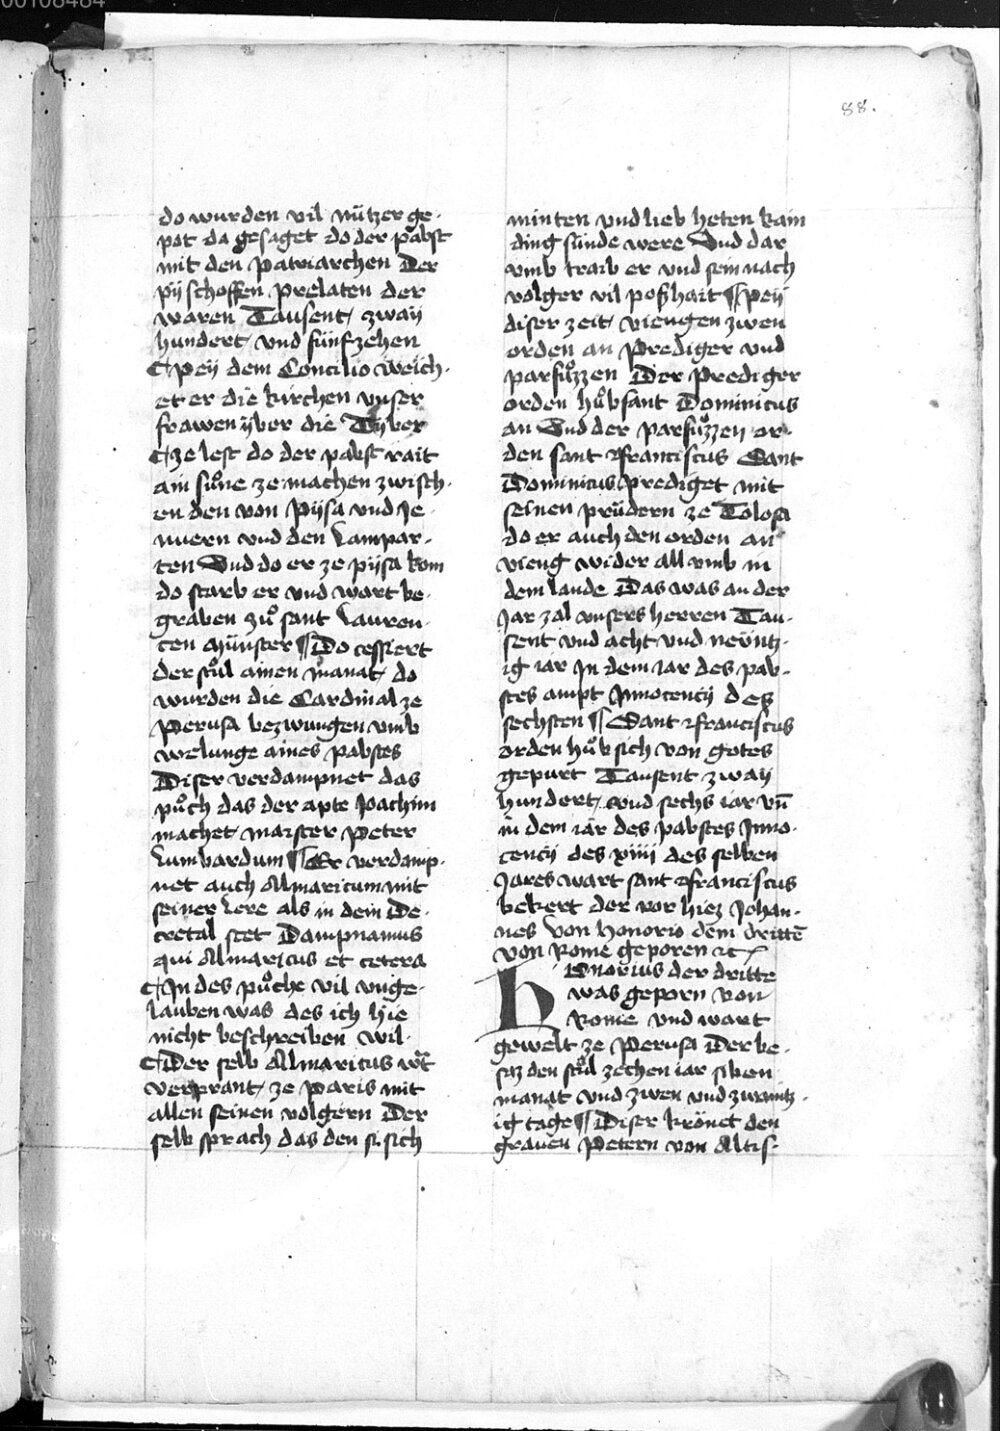 00108484
88.
do wurden vil nützer ge-
pot da gesaget do der pabst
mit den Patriarchen Der
pyschoffen prelaten der
waren Tausent zway
hundert und fünfzehen
¶ Pey dem Concilio weich-
et er die kirchen unser
frawen yber die Tyber
¶ ze lest do der pabst rait
ain sůne ze machen zwisch-
en den von Pysa und Je-
nuern und den Lampar-
ten Und do er ze pysa kom
do starb er und wart be-
graben zů sant Lauren-
cen Münster ¶ Do cessiert
der stůl ainen manat do
wurden die Cardinal ze
Perusa bezwungen umb
welunge aines pabstes
Diser verdampnet das
půch das der apte Joachim
machet maister Peter
Lumbardum ¶ Er verdamp-
net auch Almaricum mit
seiner Lere als in dem De-
cretal stet Dampnamus
qui Almaricus et cetera
¶ In des půche vil unge-
lauben was des ich hie
nicht beschreiben wil-
¶ Der selb Almaricus wt
verprant ze paris mit
allen seinen volgern Der
selb sprach das den si sich
minten und lieb heten kain
ding sünde were Und dar
umb traib er und sein nach
volger vil poßhait ¶ pey
diser zeit viengen zwen
orden an Prediger und
parfůzzen Der Prediger
orden hůb sant Dominicus
an Und der parfůzzen or-
den sant Franciscus Sant
Dominicus prediget mit
seinen prüdern ze Tolosa
do er auch den orden an
vieng wider all umb in
dem lande Das was an der
Jar zal unsers herren Tau-
sent und acht und neüntz-
ig iar In dem iar des pab-
stes ampt Innocencij des
sechsten ¶ Sant Franciscus
orden hůb sich von gotes
gepurt Tausent zway
hundert und sechs iar vn̄
in dem iar des pabstes Inno-
cencij des xiiii des selben
Jares wart sant Franciscus
bekert der vor hiez Johan-
nes Von honorio dem drittē
von Rome geporen etc
Honorius der dritte
was geporn von
Rome und wart
gewelt ze Perusa Der be-
saz den stůl zechen iar siben
manat und zwen und zwaintz-
ig tage ¶ Diser krönet den
graven Petern von Altis-